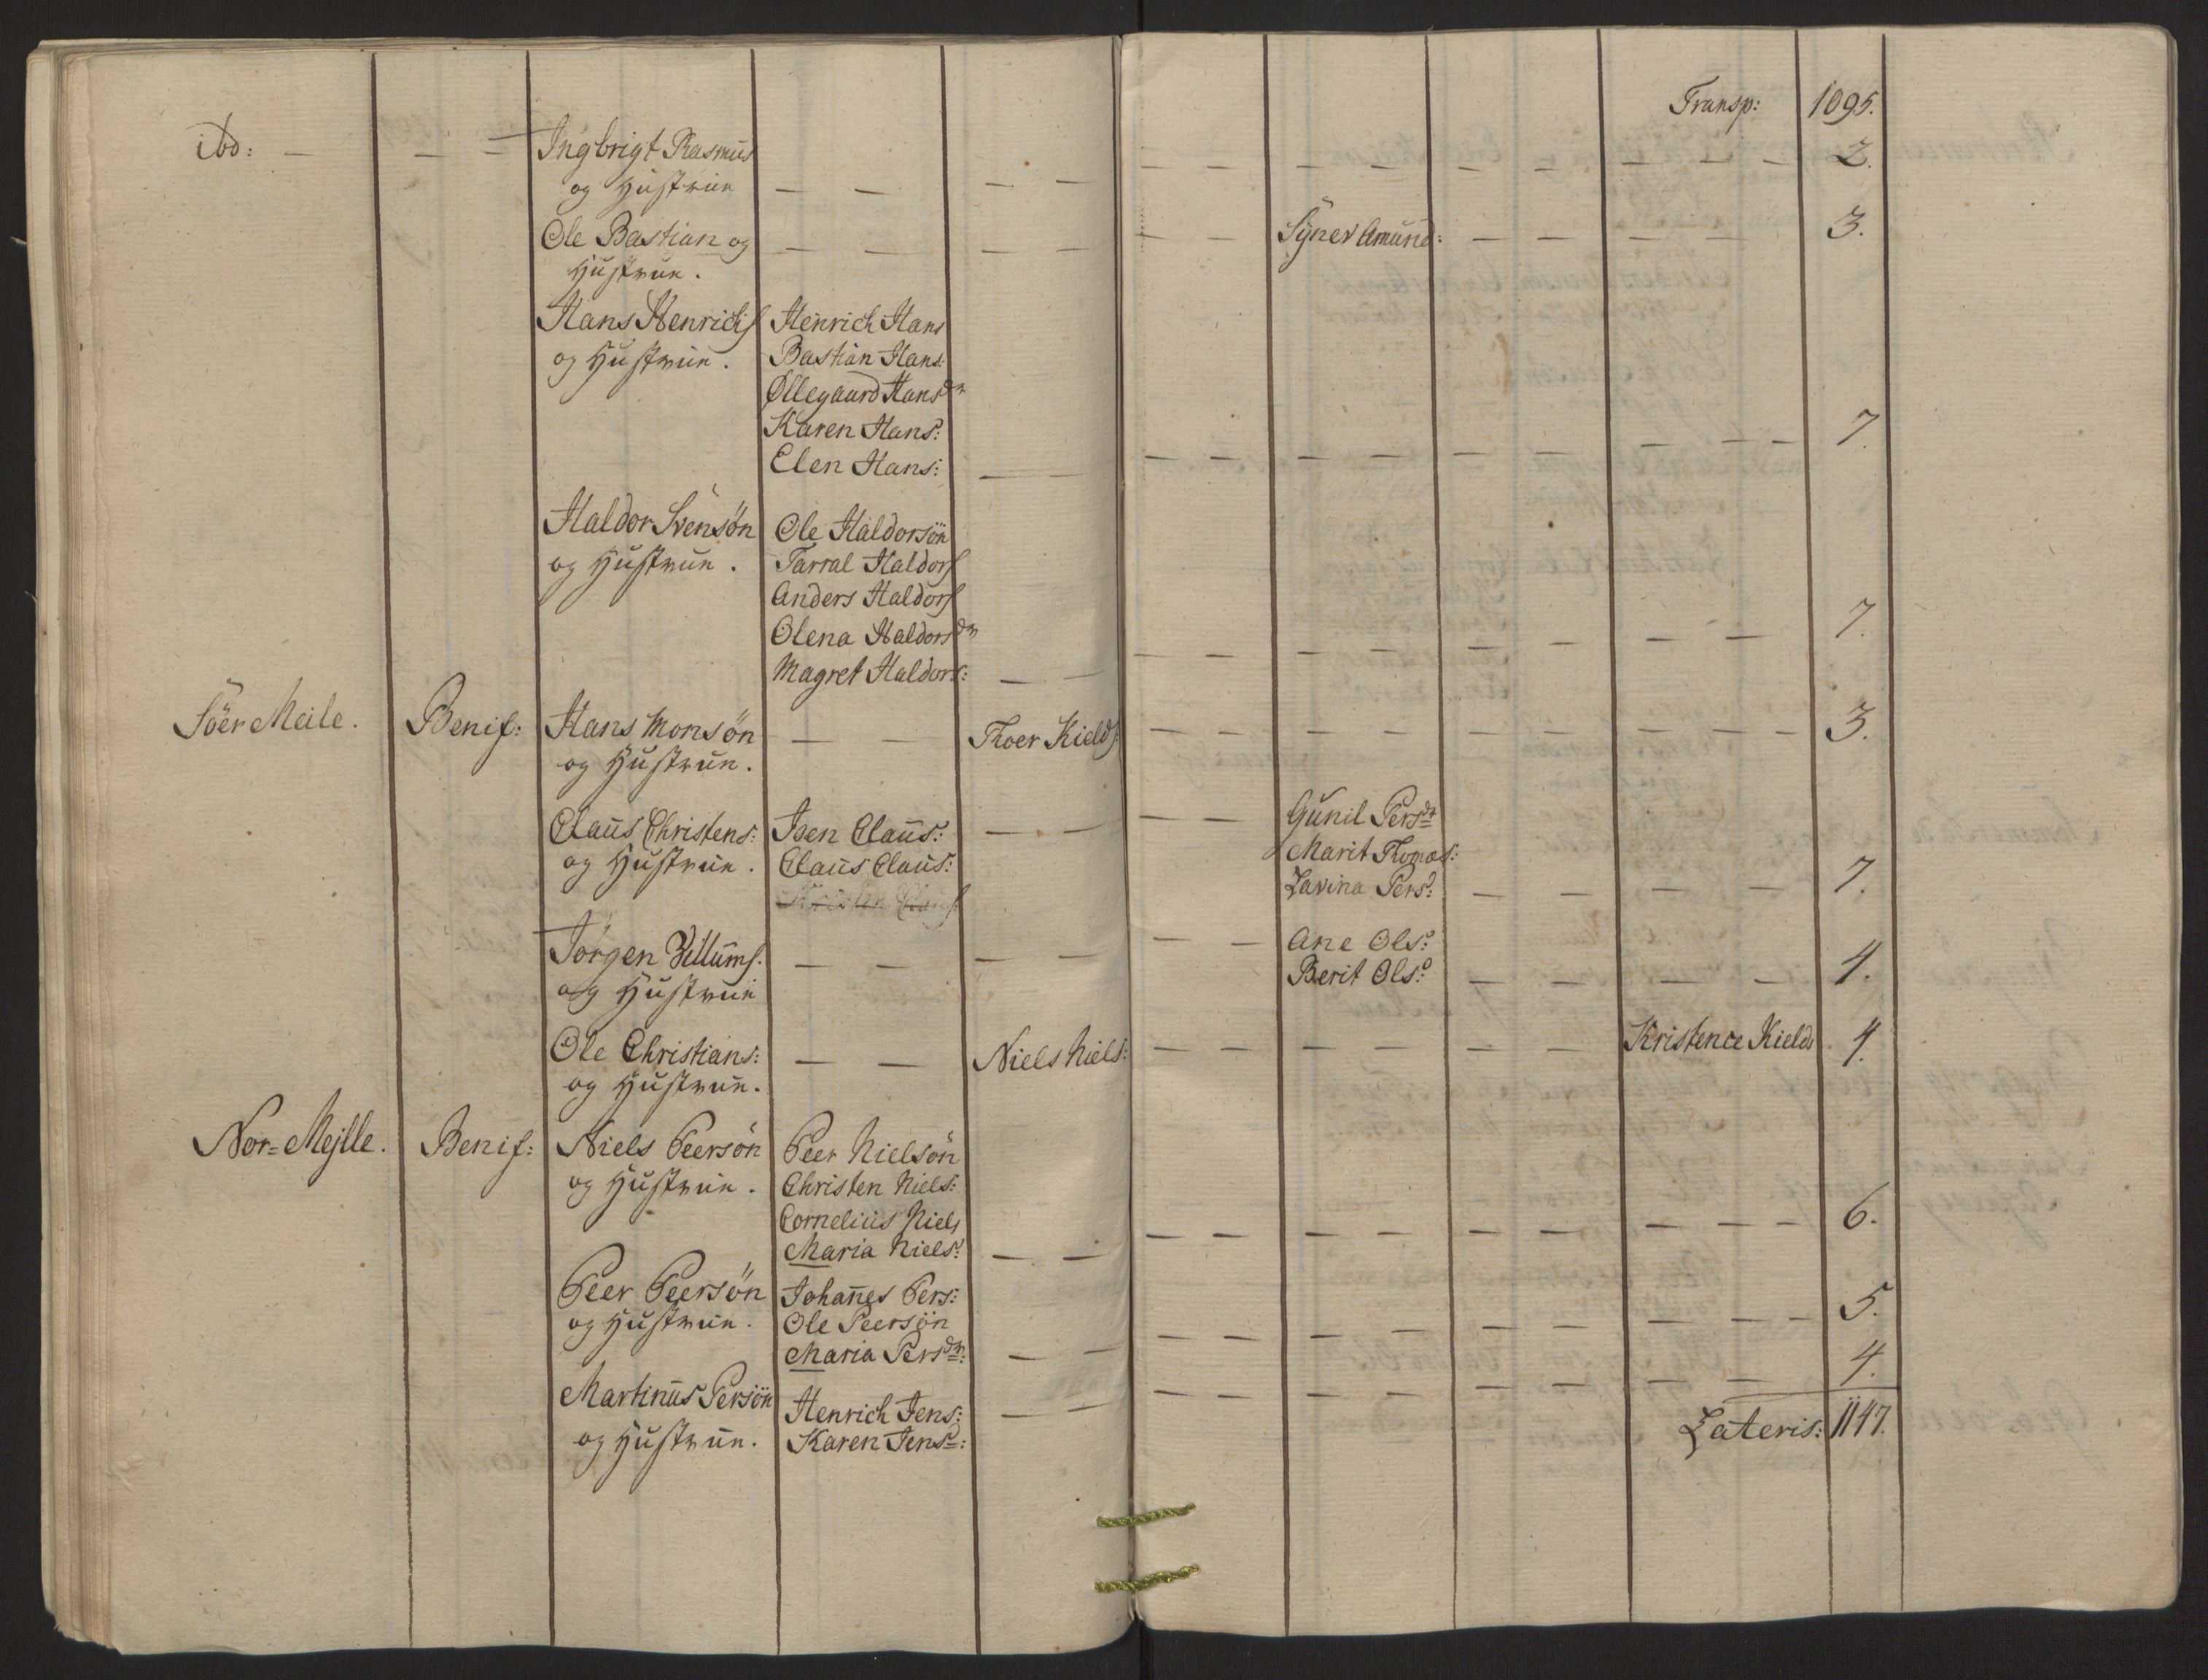 Transp: 1095.
ibd: — — — Ingbrigt Rasmus — — — — — — — — — — — — — 2.
og Hustrue
Ole Bastian og — — — — — — Syner Amund: — — — — 3.
Hustrue.
Hans Henrichs Henrich Hans
og Hustrue. Bastian Hans:
Øllegaard Hansdr
Karen Hans:
Elen Hans: — — — — — — — — — — 7.
Haldor Svensøn Ole Haldorsøn
og Hustrue. Tarral Haldors
Anders Haldors
Olena Haldorsdr
Magret Haldors: — — — — — — — — — — 7.
Söer Meile. Benif: Hans Monsøn — — Thoer Kields: — — — — — — — — — 3.
og Hustrue.
Claus Christens: Jsen Claus: — — — — Gunil Persdr
og Hustrue. Claus Claus: Marit Thomæs:
Lavina Pers: — — — — 7.
Jörgen Villums. — — — — — — Ane Ols:
og Hustrue Berit Ols: — — — — 4.
Ole Christians: — — Niels Niels: — — — — — — Kristence Kields 4.
og Hustrue.
Nor=Mejlle. Benif: Niels Peersøn Peer Nielsøn
og Hustrue. Christen Niels:
Cornelius Niels
Maria Niels: — — — — — — — — — — — 6.
Peer Peersøn Johannes Pers:
og Hustrue. Ole Peersøn
Maria Persdr: — — — — — — — — — — — 5.
Martinus Persøn Henrich Jens: — — — — — — — — — — 4.
og Hustrue. Karen Jens:
Lateris: 1147.